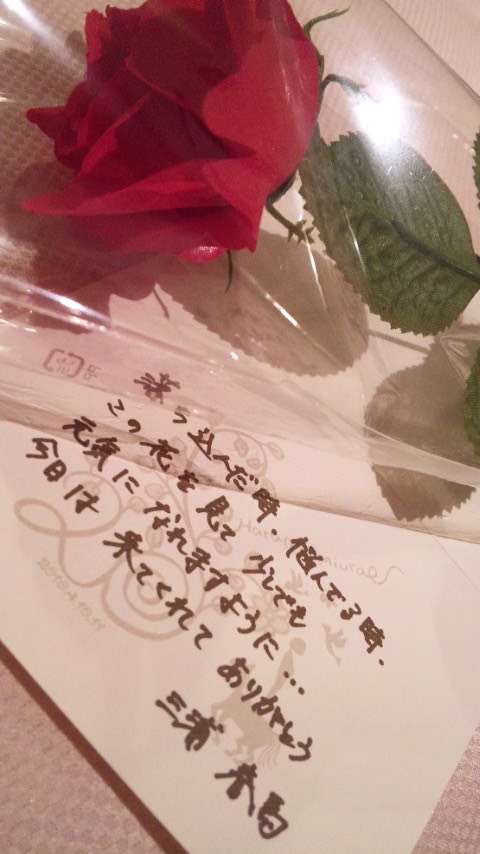 落ち込んだ時、悩んでる時、
この花を見て少しでも
元気になれますように…
今日は来てくれてありがとう
三浦春馬